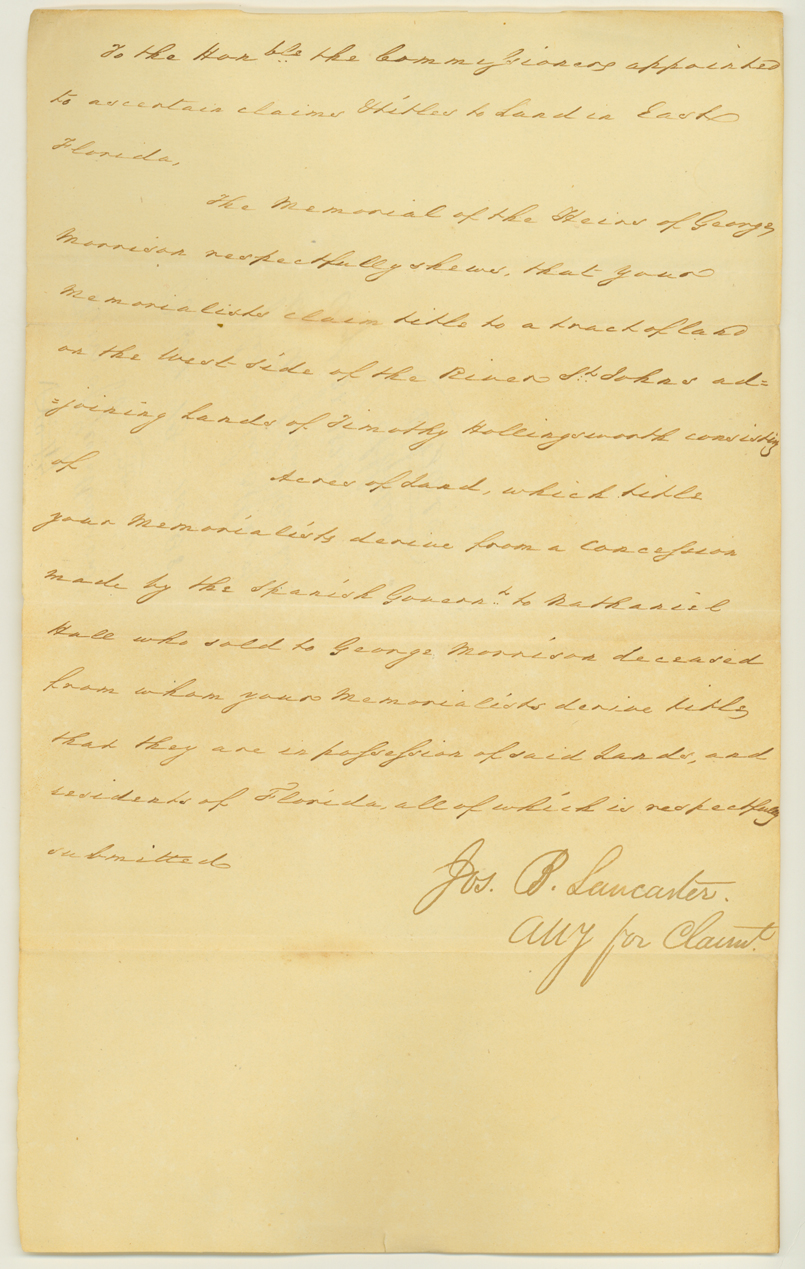 To the Hon ble the Commissioners appointed
to ascertain claims & titles to Land in East
Florida,
The Memorial of the Heirs of George
Morrison respectfully shews, that your
Memorialists claim title to a tract of land
on the West side of the River St Johns ad=
=joining Lands of Timothy Hollingsworth consisting
of Acres of Land, which title
your Memorialists derive from a Concession
made by the Spanish Governt to Nathaniel
Hall who sold to George Morrison deceased
from whom your Memorialists derive title,
that they are in possession of said Lands, and
residents of Florida, all of which is respectfully
submitted
Jos. B. Lancaster.
Atty for Claimt.